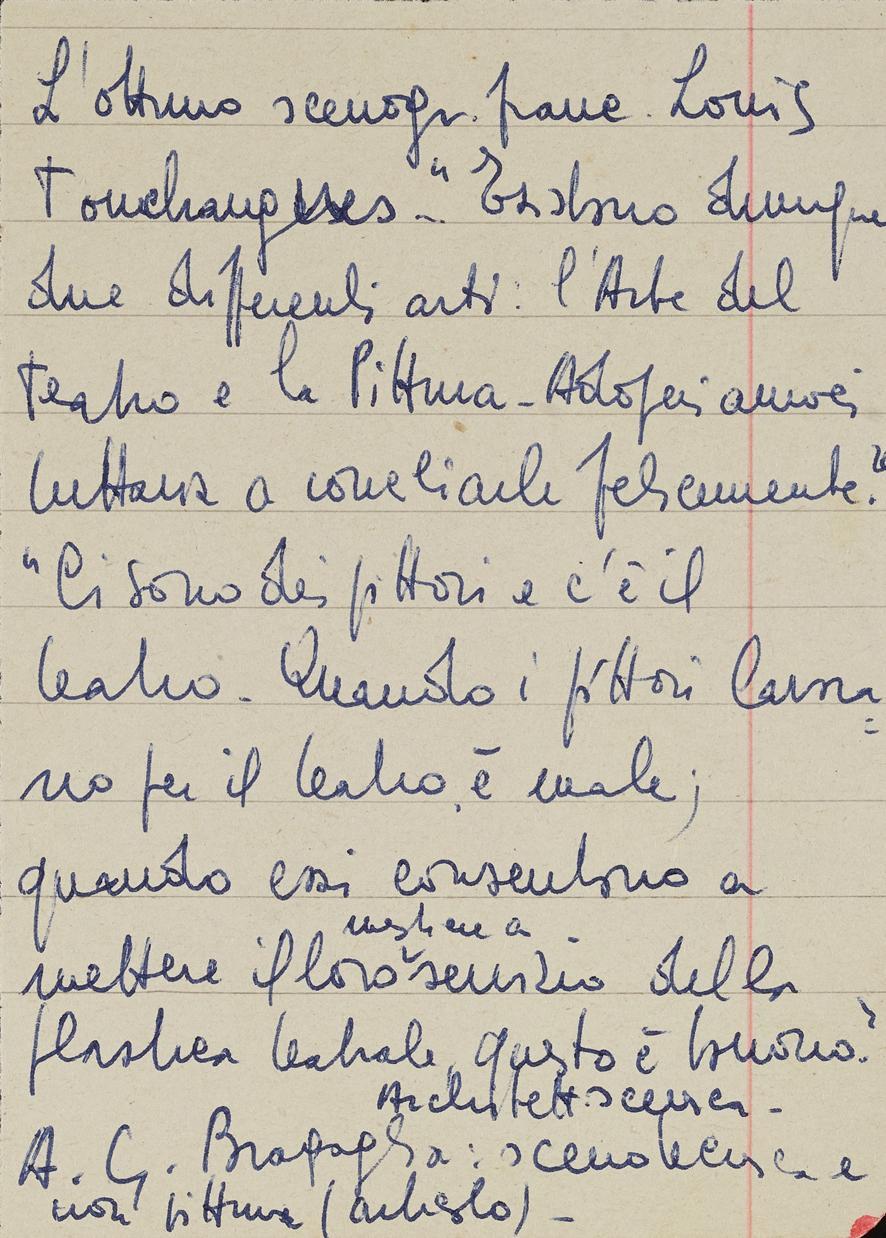 L'ottimo scenogr. franc. Louis
Touchagues. "Esistono dunque
due differenti arti: l'Arte del
Teatro e la Pittura - Adoperiamoci
tuttavia a conciliarle felicemente."
"Ci sono dei pittori e c'è il
teatro. Quando i pittori lavora=
no per il teatro, è male;
quando essi consentono a
mestiere a
mettere il loro servizio della
plastica teatrale, questo è buono."
Architett. scenica -
A. G. Bragaglia: scenotecnica e
non pittura (articolo) -